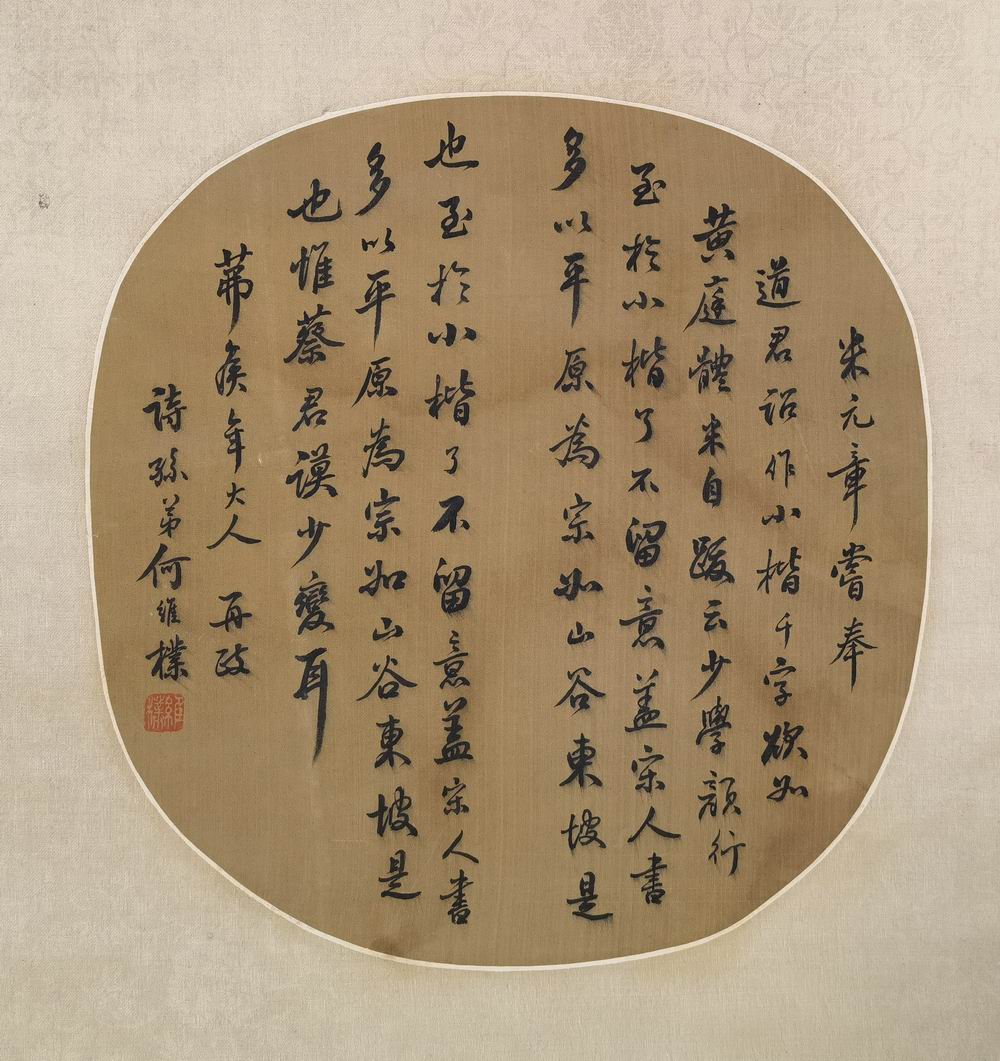 米元章嘗奉
道君詔作小楷千字欲如
黃庭體米自跋云少學顏行
至於小楷了不留意蓋宋人書
多以平原為宗如山谷東坡是
也至於小楷了不留意蓋宋人書
多以平原為宗如山谷東坡是
也惟蔡君謨少變耳
茀矦年大人 再政
詩孫弟何維樸
維樸